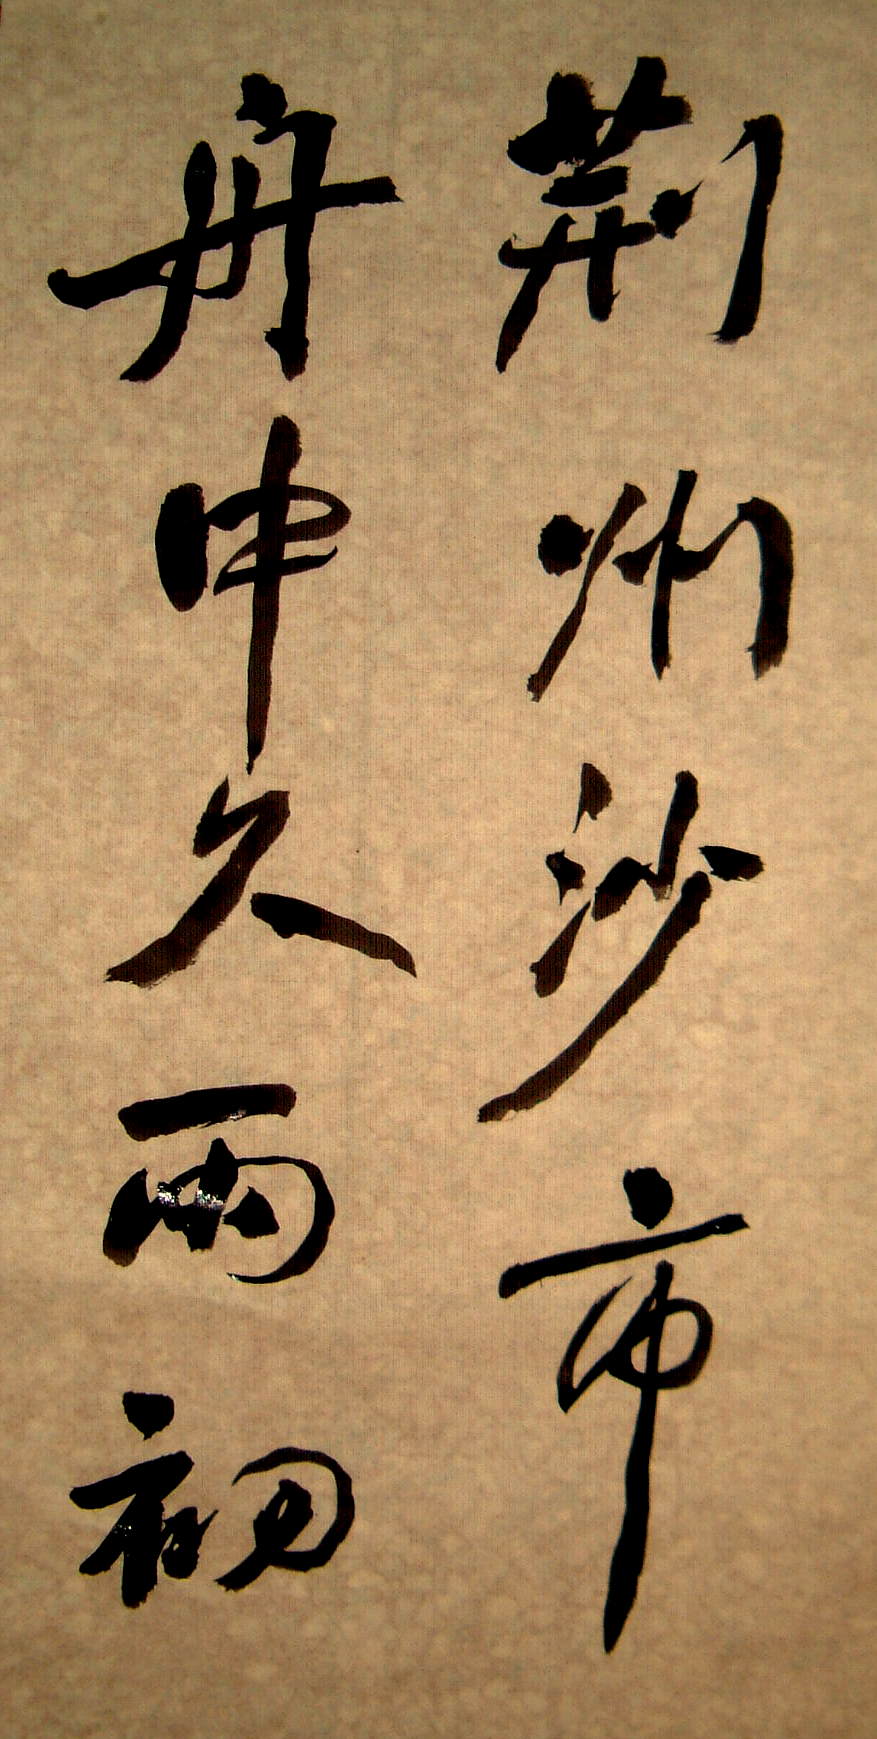 荆州沙市
舟中久雨初